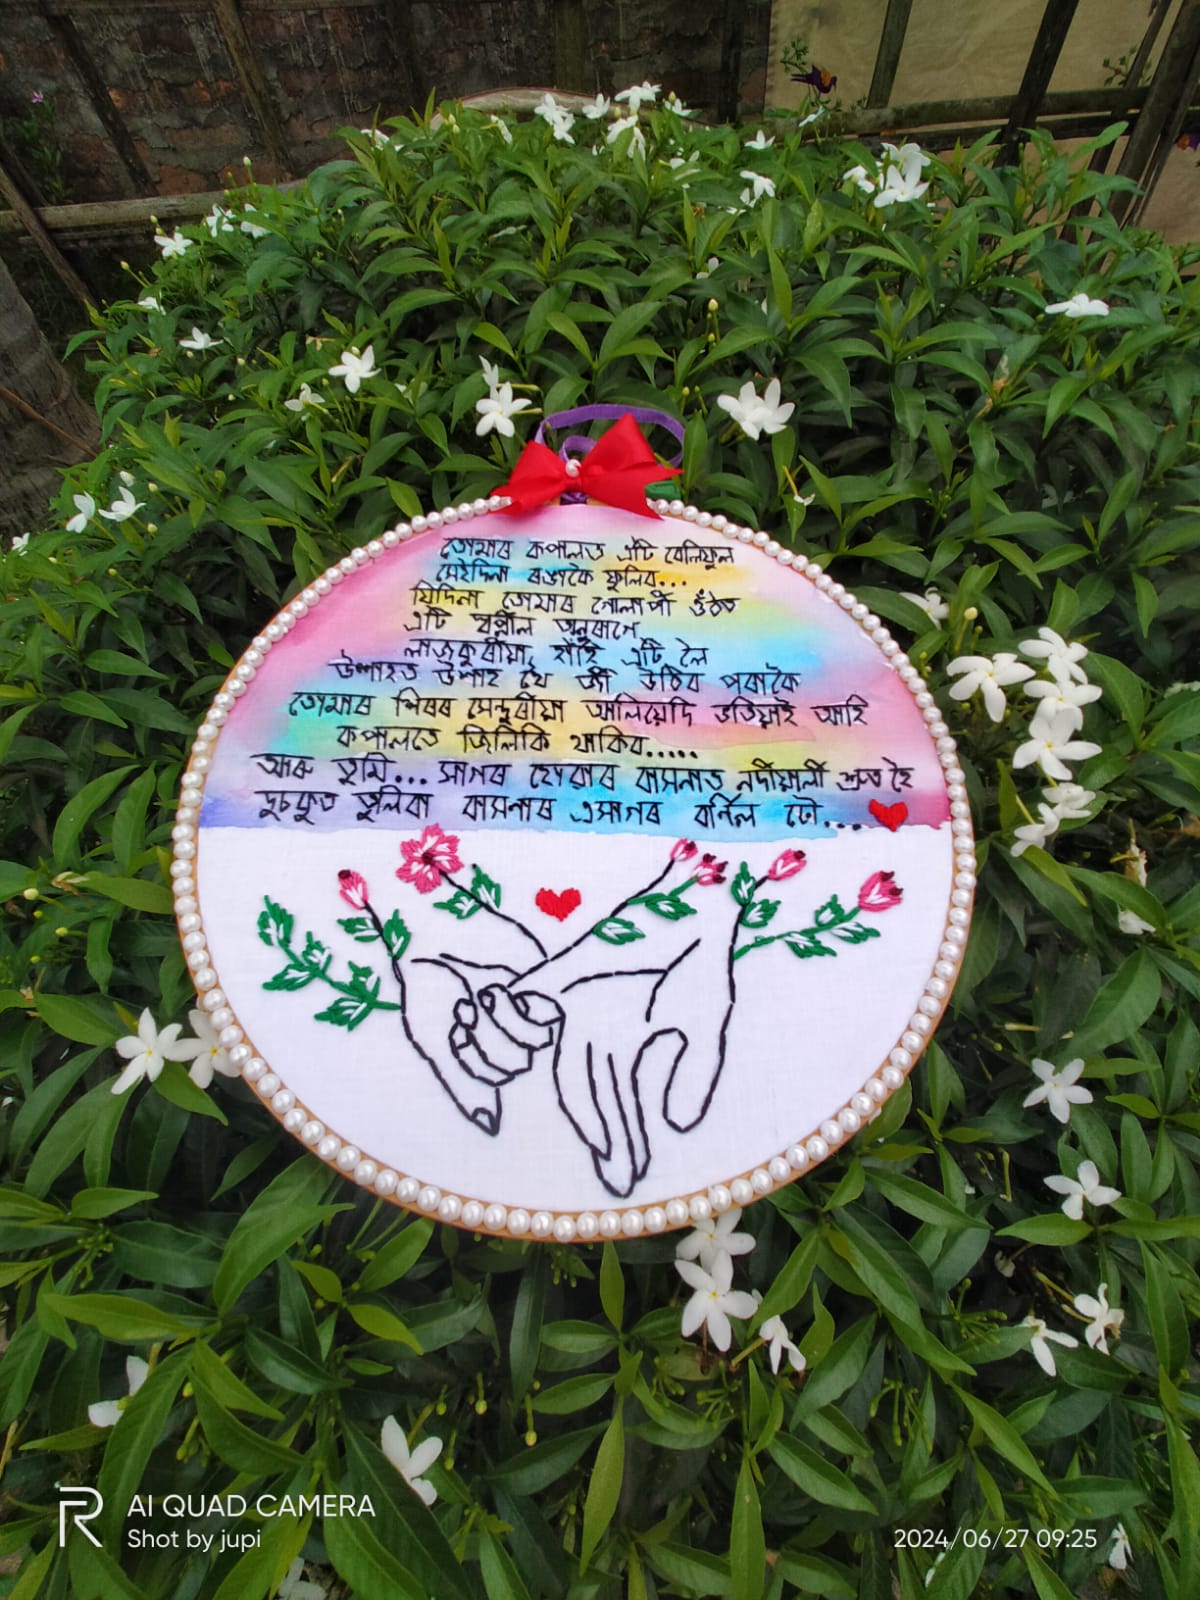 তোমাৰ কপালত এটি বেলিফুল
সেইদিনা ৰঙাকৈ ফুলিব...
যিদিনা তোমাৰ গোলাপী ওঁঠত
এটি স্বপ্নীল অনুৰাগে
লাজকুৰীয়া হাঁহি এটি লৈ
উশাহত উশাহ থৈ জী উঠিব পৰাকৈ
তোমাৰ শিৰৰ সেন্দুৰীয়া আলিয়েদি ভটিয়াই আহি
কপালতে জিলিকি থাকিব.....
আৰু তুমি... সাগৰ হোৱাৰ বাসনাত নদীয়ালী হৈ
দুচকুত তুলিবা বাসনাৰ এসাগৰ বৰ্নিল ঢৌ...
AI QUAD CAMERA
Shot by jupi
2024/06/27 09:25